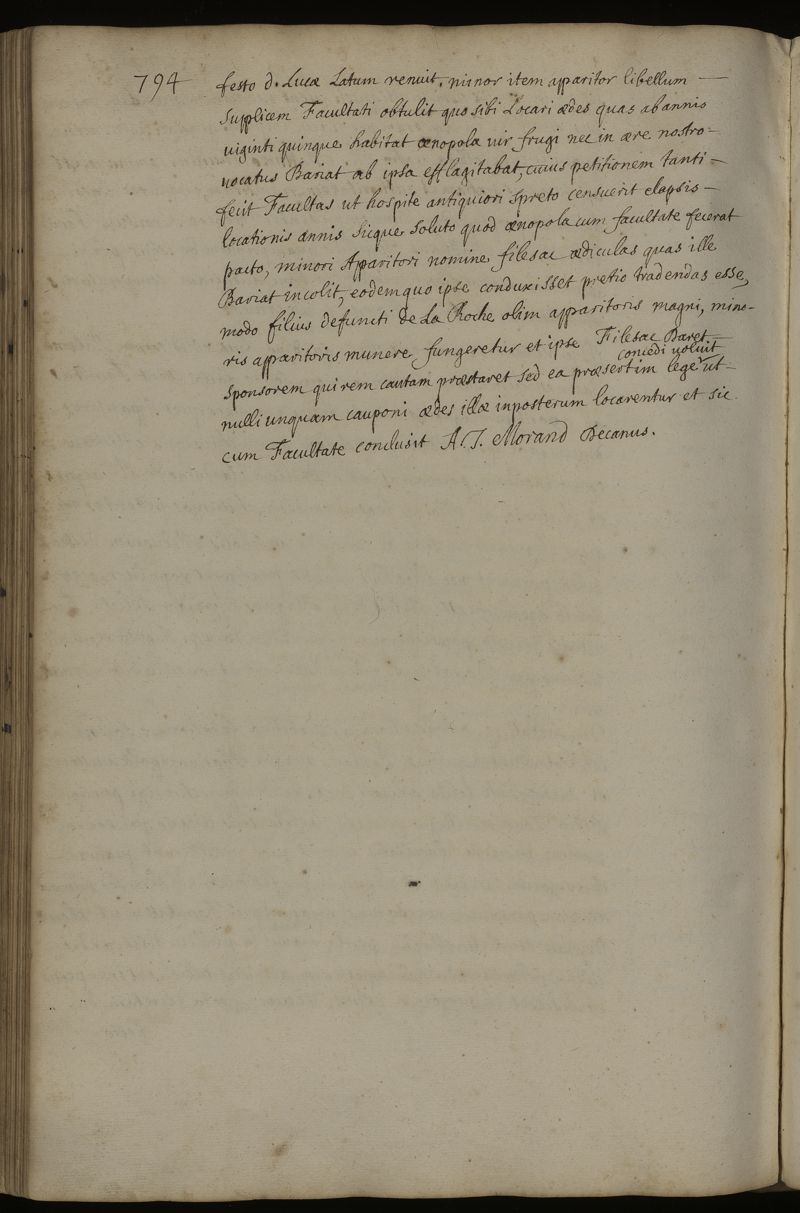 794
festo d. Lucæ Latum renuit. minor item apparitor libellum —
supplicem Facultati obtulit quo sibi Locari ædes quas ab annis
uiginti quinque habitat œnopola uir frugi nec in ære nostro -
uocatus Bariat ab ipsa efflagitabat, cuius petitionem tanti -
fecit Facultas ut hospite antiquiori spreto censuerit elapsis -
locationis annis sicque soluto quod œnopola cum facultate fecerat
pacto, minori Apparitori nomine filesac ædiculas quas ille
Bariat incolit, eodem quo ipse conduxisset pretio tradendas esse,
modo filius defuncti de La Roche olim apparitoris magni, mino-
ris apparitoris munere fungeretur et ipse Filesac Daret
concedi uoluit
sponsorem qui rem cautam præstaret sed ea præsertim lege ut -
nulli unquam cauponi ædes illæ inposterum locarentur et sic.
cum Facultate conclusit A. T. Morand Decanus.